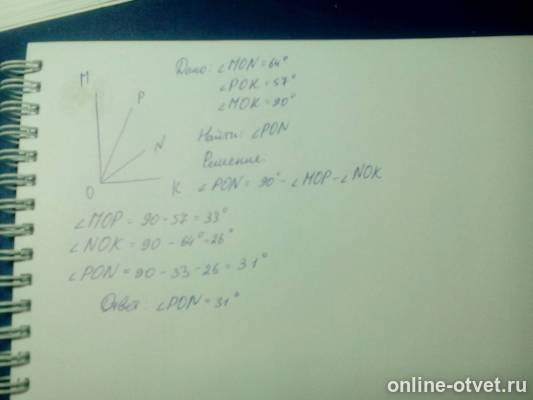 M
P
N
O
K
Дано: ∠MON = 64°
∠POK = 57°
∠MOK = 90°
Найти: ∠PON
Решение.
∠PON = 90° - ∠MOP - ∠NOK
∠MOP = 90 - 57 = 33°
∠NOK = 90 - 64° = 26°
∠PON = 90 - 33 - 26 = 31°
Ответ: ∠PON = 31°
online-otvet.ru